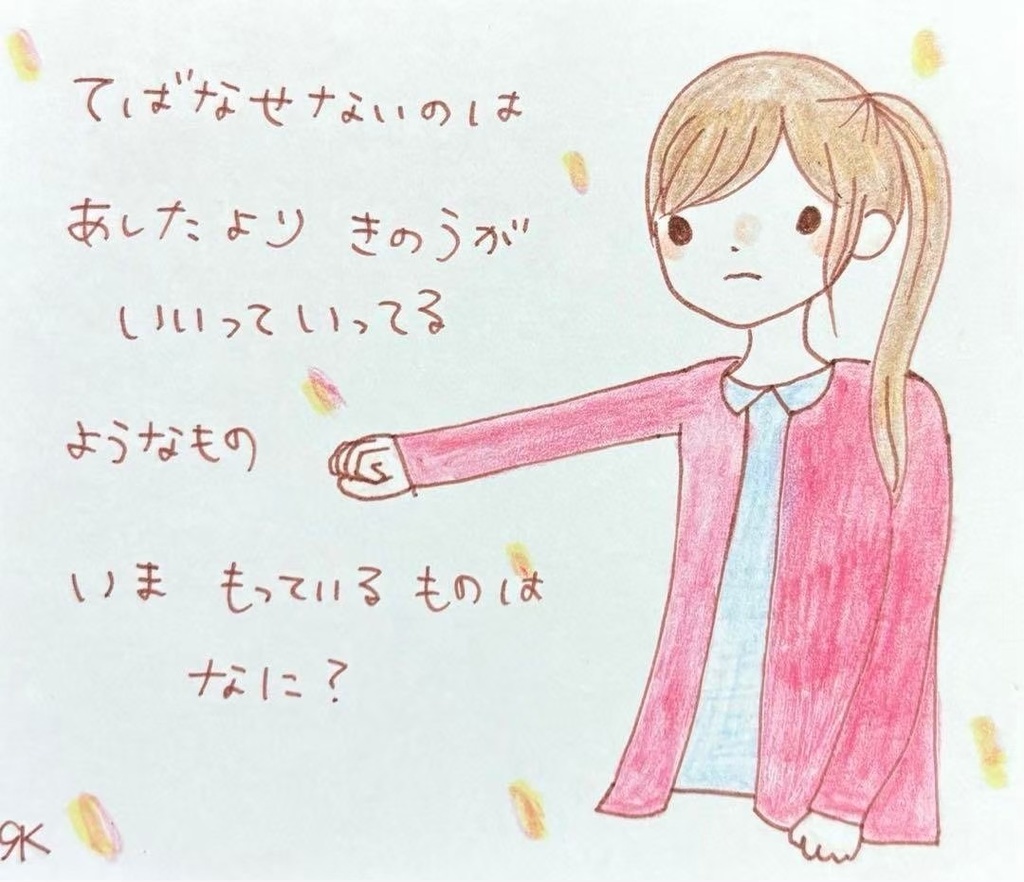 てばなせないのは
あしたより きのうが
いいっていってる
ようなもの
いま もっている ものは
なに?